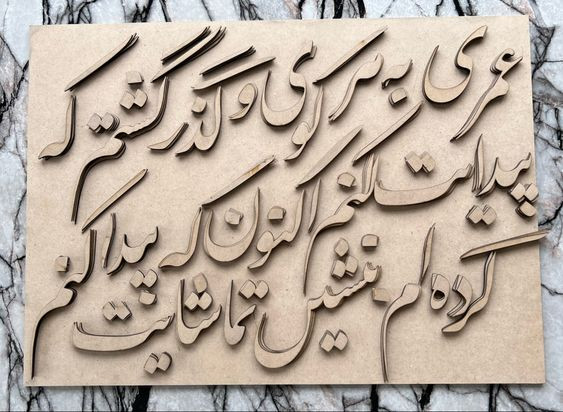 عمری به هر کوی و گذر گشتم که
پیدایت کنم اکنون که پیدا
کرده ام بنشین تماشایت کنم